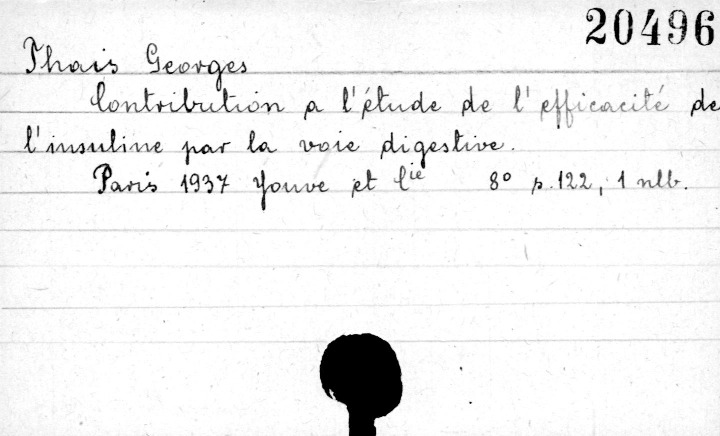 20496
Thais Georges
Contribution a l'étude de l'efficacité de
l'insuline par la voie digestive.
Paris 1937 Jouve et Cie 8° s.122, 1 nlb.